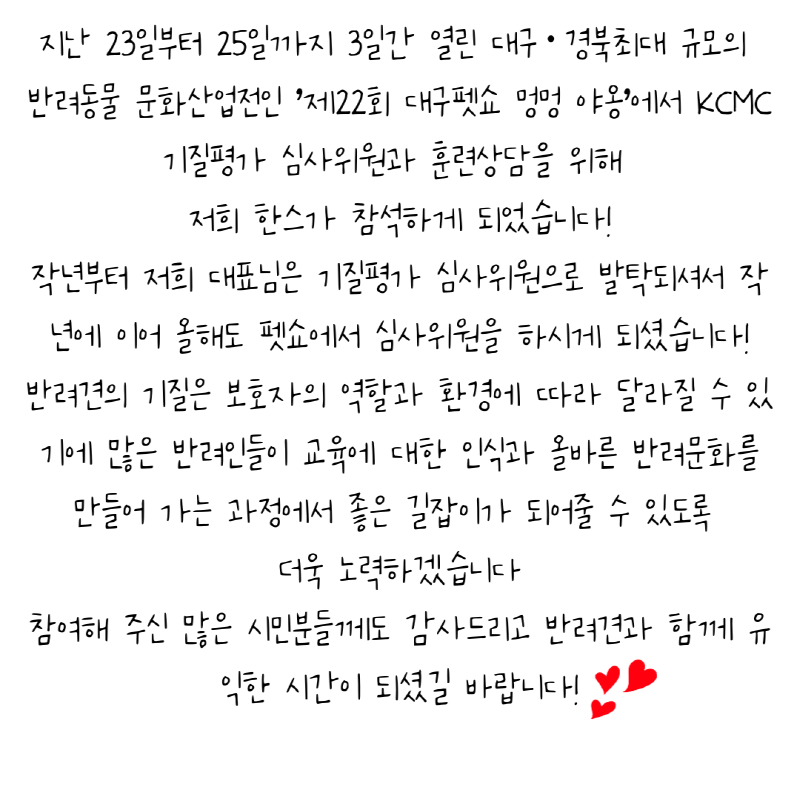 지난 23일부터 25일까지 3일간 열린 대구•경북최대 규모의
반려동물 문화산업전인 '제22회 대구펫쇼 멍멍 야옹'에서 KCMC
기질평가 심사위원과 훈련상담을 위해
저희 한스가 참석하게 되었습니다!
작년부터 저희 대표님은 기질평가 심사위원으로 발탁되셔서 작
년에 이어 올해도 펫쇼에서 심사위원을 하시게 되셨습니다!
반려견의 기질은 보호자의 역할과 환경에 따라 달라질 수 있
기에 많은 반려인들이 교육에 대한 인식과 올바른 반려문화를
만들어 가는 과정에서 좋은 길잡이가 되어줄 수 있도록
더욱 노력하겠습니다
참여해 주신 많은 시민분들께도 감사드리고 반려견과 함께 유
익한 시간이 되셨길 바랍니다!